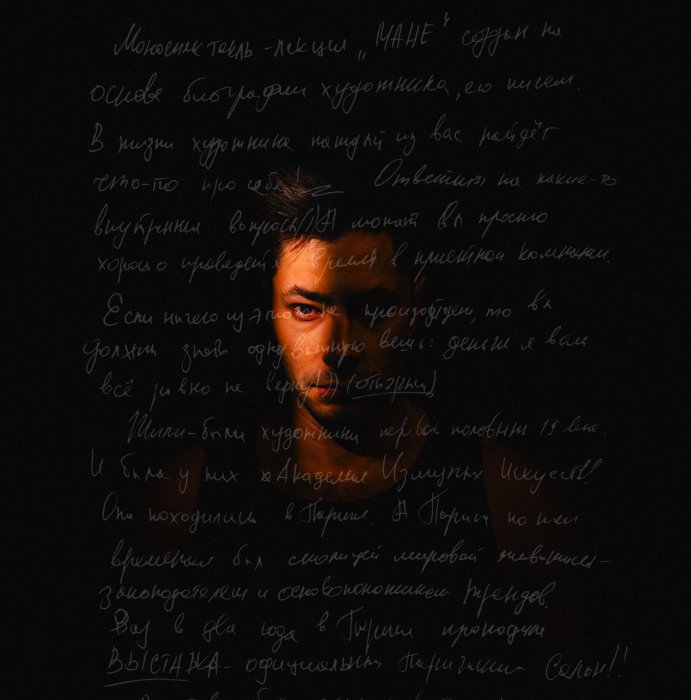 Моноспектакль-лекция „МАНЕ“ создан на
основе биографии художника, его писем.
В жизни художника каждый из вас найдёт
что-то про себя! Ответит на какие-то
внутренние вопросы)) А может вы просто
хорошо проведёте время в приятной компании.
Если ничего из этого не произойдёт, то вы
должны знать одну важную вещь: деньги я вам
всё равно не верну)) (отыгрыш)
Жили-были художники первой половины 19 века.
И была у них Академия Изящных Искусств!
Она находилась в Париже. А Париж по тем
временам был столицей мировой живописи-
законодателем и основоположником трендов.
Раз в два года в Париже проходила
ВЫСТАВКА - официальный Парижский Салон!!